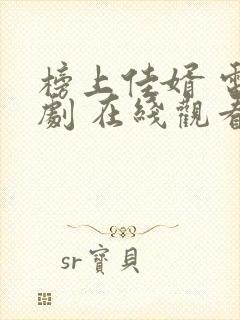 榜上佳婿 電
劇 在綫觀看
sr寶貝